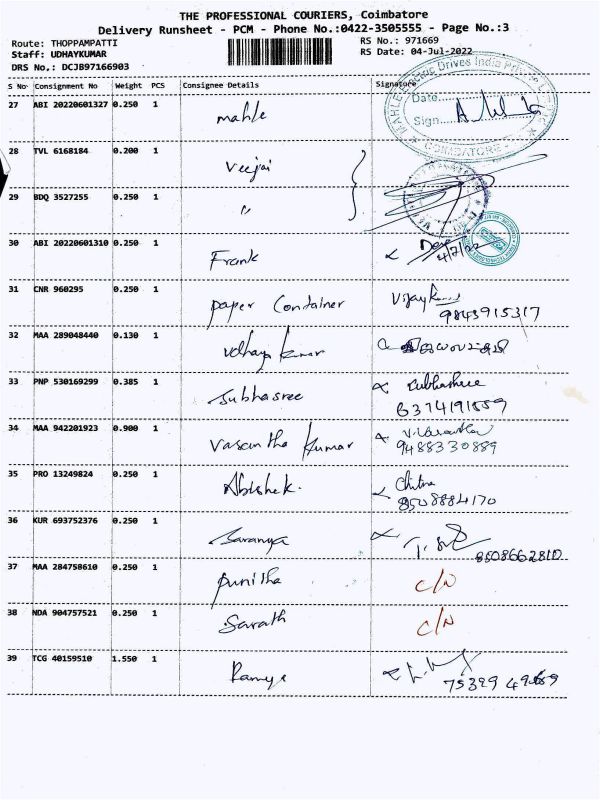 THE PROFESSIONAL COURIERS, Coimbatore
Delivery Runsheet - PCM - Phone No.:0422-3505555 - Page No.:3
Route: THOPPAMPATTI RS No.: 971669
Staff: UDHAYKUMAR RS Date: 04-Jul-2022
DRS No.: DCJB97166903
S No Consignment No Weight PCS Consignee Details Signature
27 ABI 20220601327 0.250 1 mahle
MAHLE Electric Drives India Private Limited
Date
Sign
COIMBATORE
28 TVL 6168184 0.200 1 Veejai
29 BDQ 3527255 0.250 1 "
30 ABI 20220601310 0.250 1 Frank
4/7/22
31 CNR 960295 0.250 1 paper Container Vijayk
9843915317
32 MAA 289048440 0.130 1 udhaya kumar
33 PNP 530169299 0.385 1 Subhasree
6374191859
34 MAA 942201923 0.900 1 Vasantha Kumar
9488330889
35 PRO 13249824 0.250 1 Abishek. Chitra
8508884170
36 KUR 693752376 0.250 1 Saranya
8508662810
37 MAA 284758610 0.250 1 punitha C/N
38 NDA 904757521 0.250 1 Sarath C/N
39 TCG 40159510 1.550 1 Ramya
75399